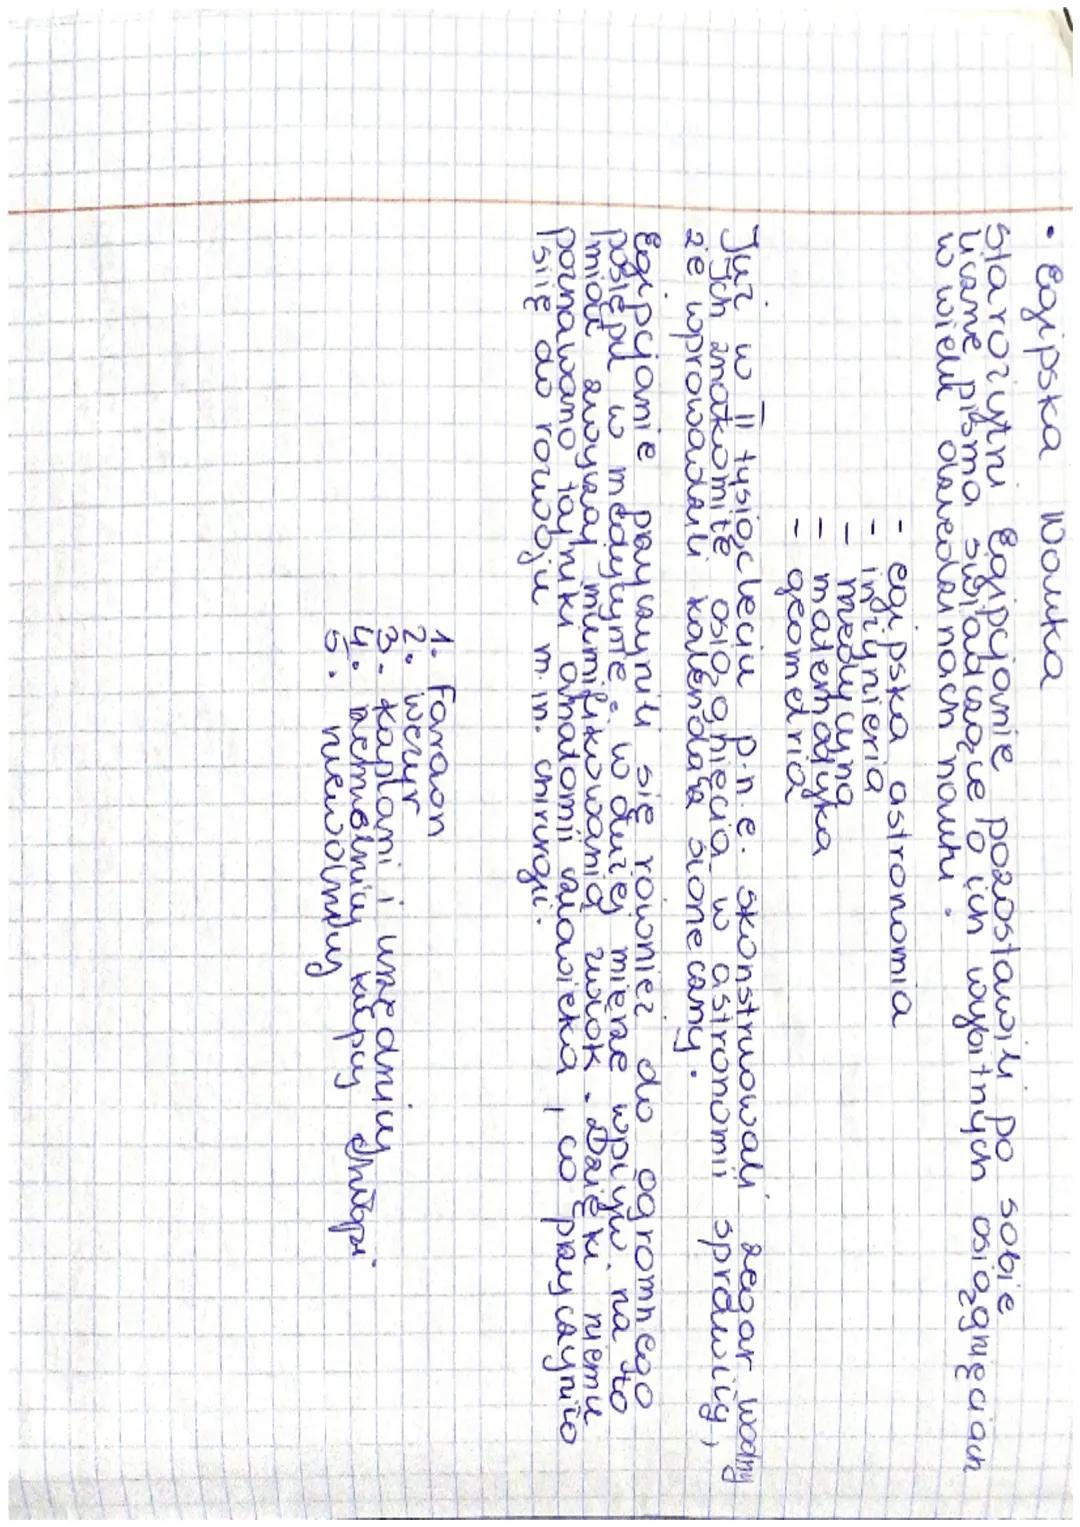 • Egipska Nauka
Starożytni Egipcjanie pozostawili po sobie
liczne pisma świadczące o ich wybitnych osiągnięciach
w wielu dziedzinach nauki.
- egipska astronomia
- inżynieria
- medycyna
- matematyka
- geometria
Już w II tysiącleciu p.n.e. skonstruowali zegar wodny
Ich znakomite osiągnięcia w astronomii sprawiły,
że wprowadzili kalendarz słoneczny.
Egipcjanie przyczynili się również do ogromnego
postępu w medycynie. W dużej mierze wpływ na to
miał zwyczaj mumifikowania zwłok. Dzięki niemu
poznawano tajniki anatomii człowieka, co przyczyniło
się do rozwoju m.in. chirurgii.
1. Faraon
2. wezyr
3. kapłani i urzędnicy
4. rzemieślnicy kupcy chłopi
5. niewolnicy